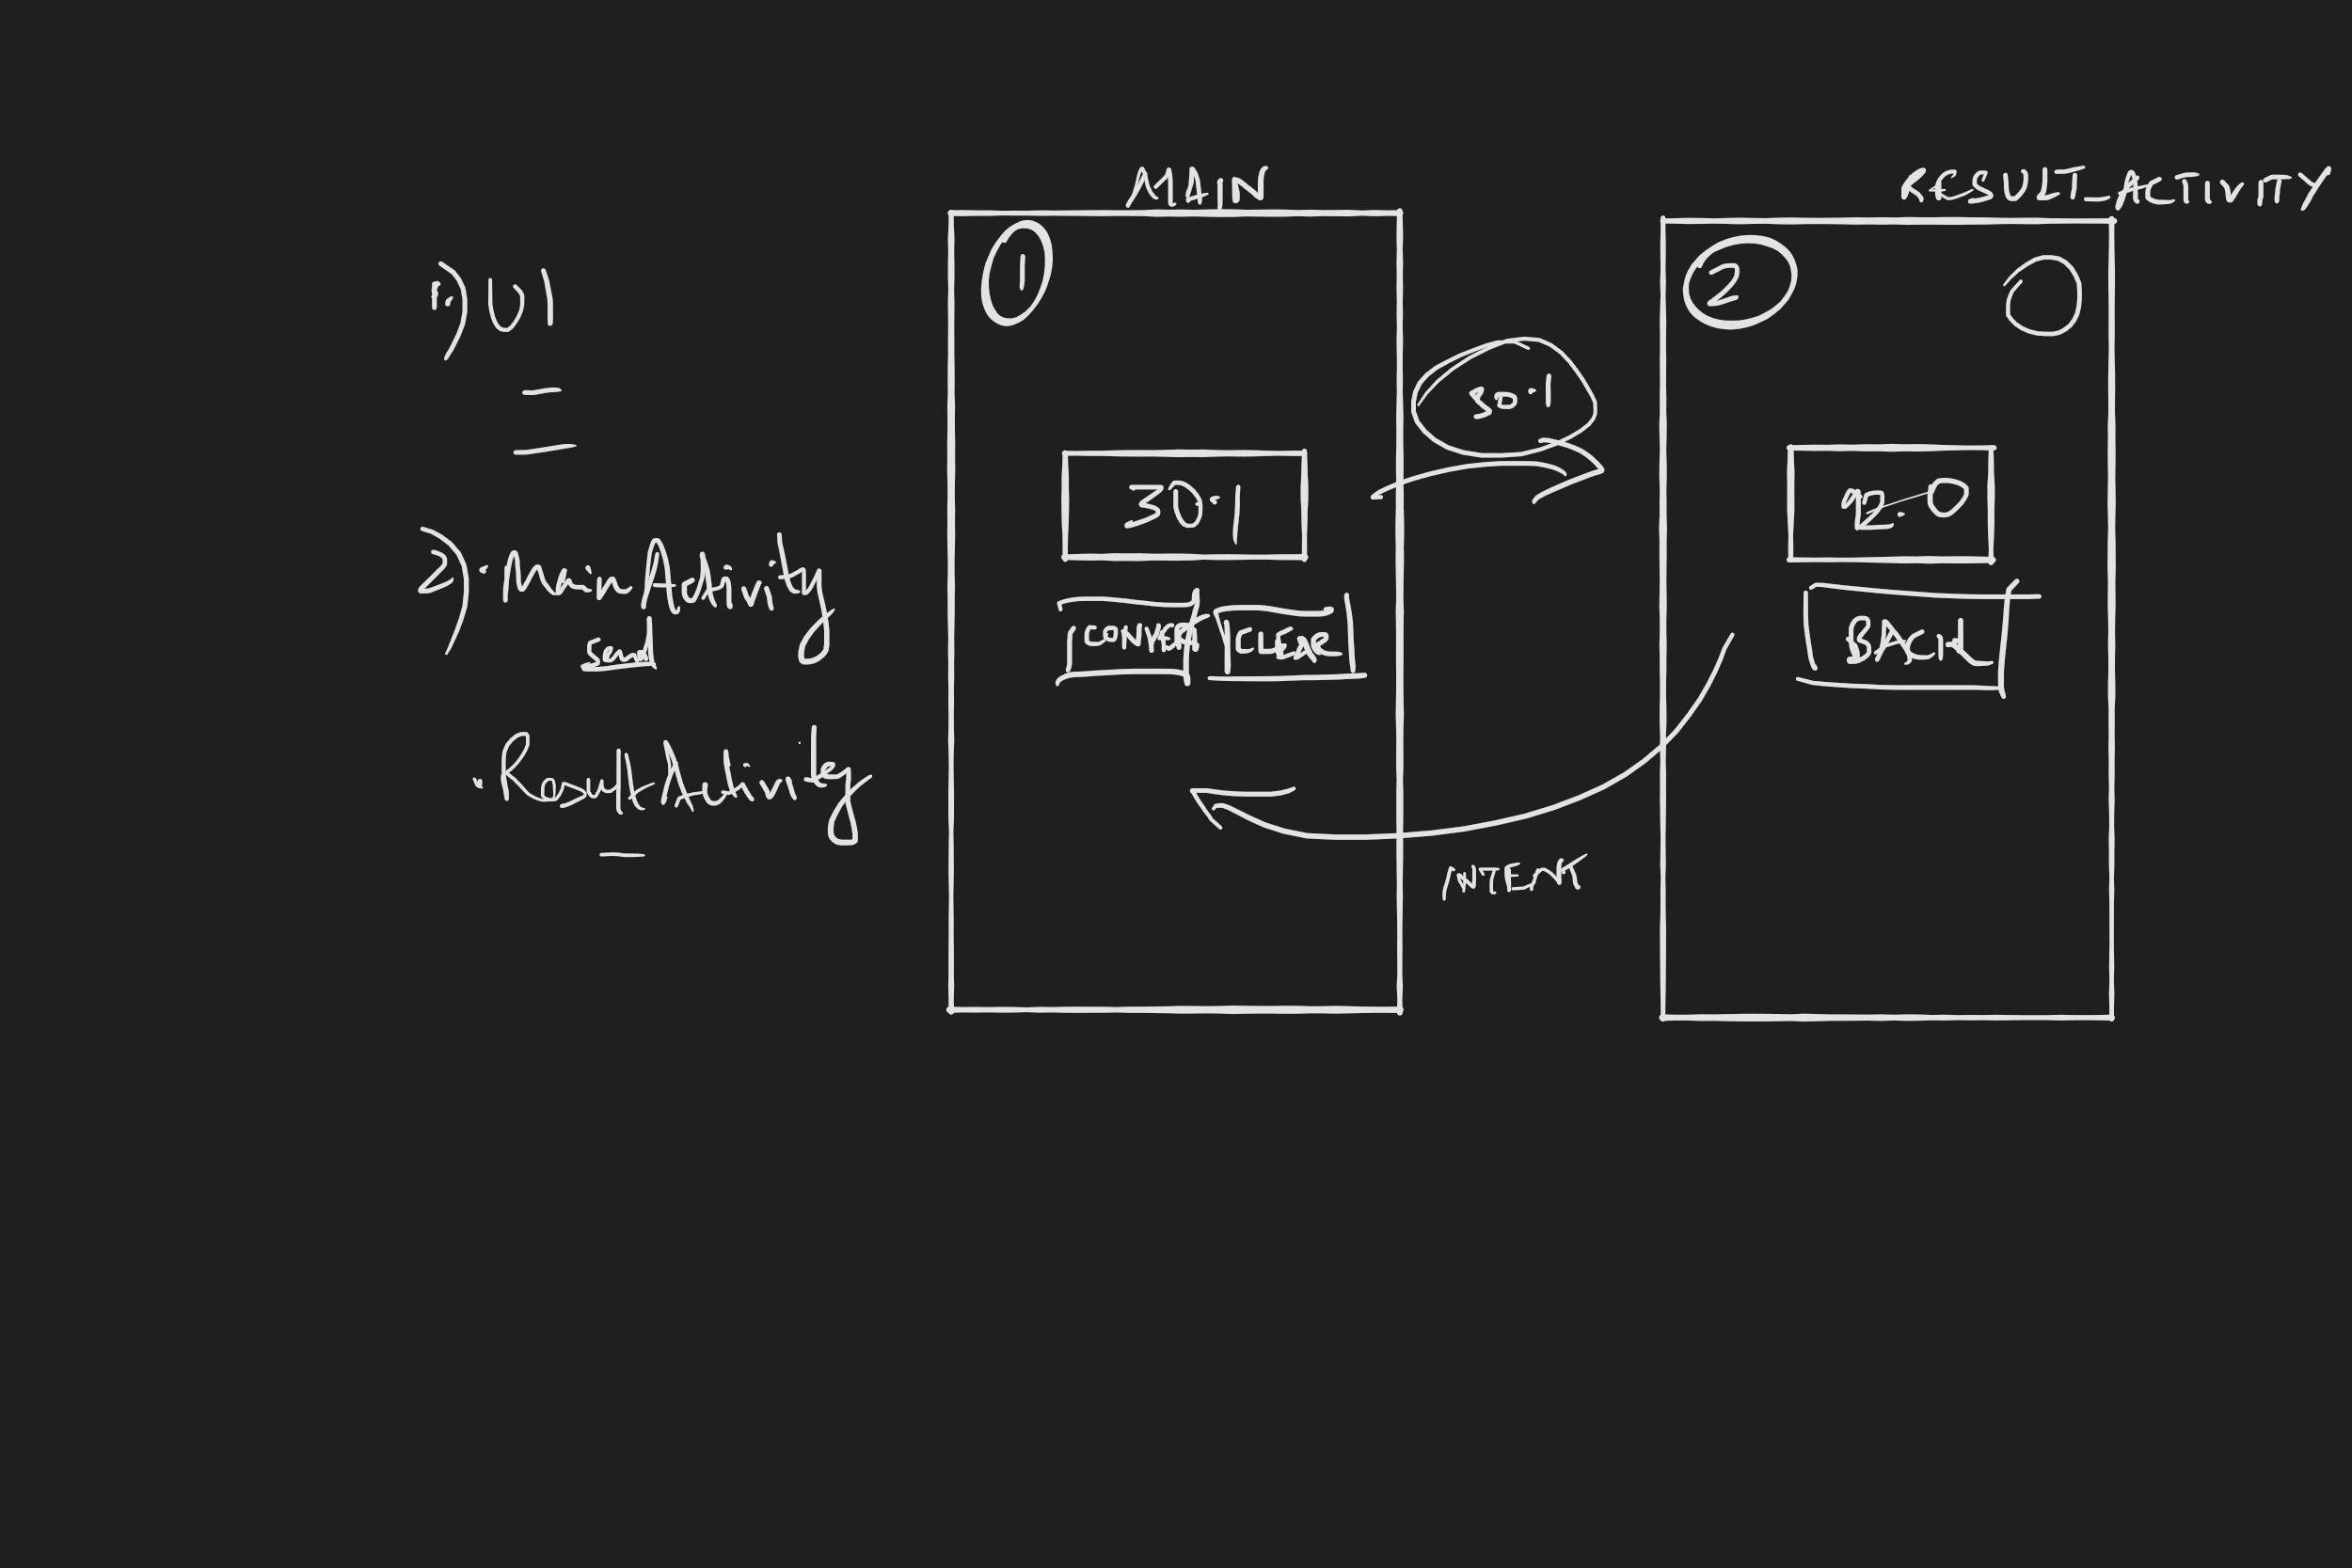 1) UI
2) . Main Activity
send
. Result Activity
MAIN
1
30.1
CONVERT
CLEAR
30.1
INTENT
RESULT_ACTIVITY
2
BACK